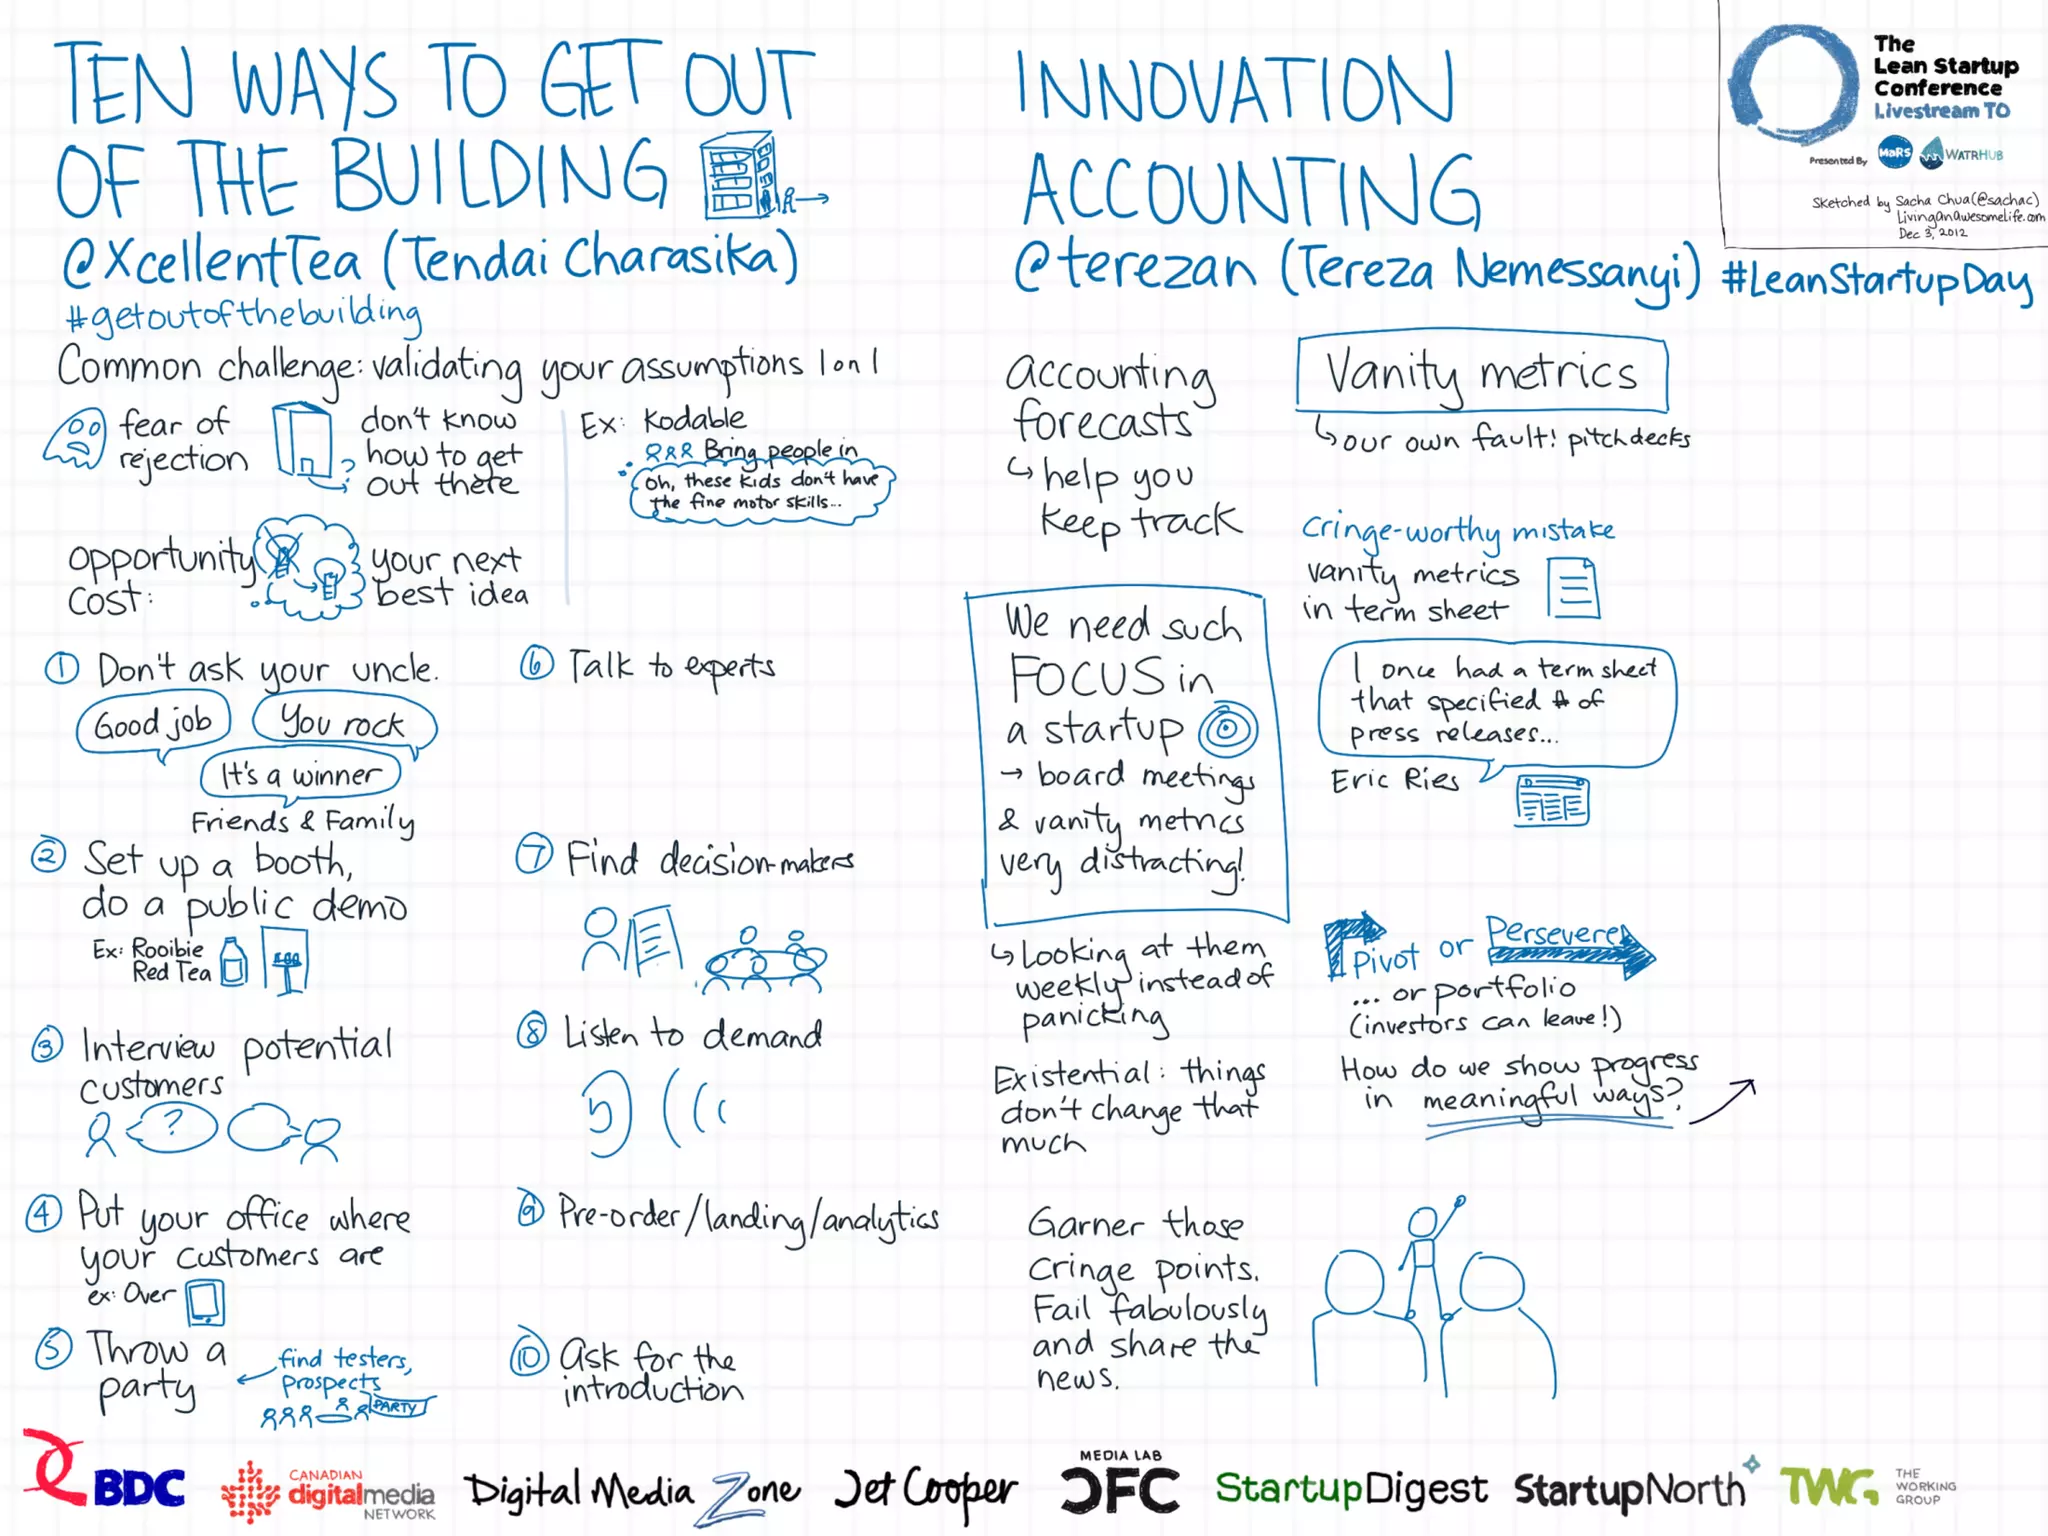 TEN WAYS TO GET OUT
OF THE BUILDING
@XcellentTea (Tendai Charasika)
#getoutofthebuilding
Common challenge: validating your assumptions 1 on 1
fear of
rejection
don't know
how to get
out there
?
Ex: Kodable
Bring people in
oh, these kids don't have
the fine motor skills...
opportunity
cost:
your next
best idea
1 Don't ask your uncle.
Good job
You rock
It's a winner
Friends & Family
2 Set up a booth,
do a public demo
Ex: Rooibie
Red Tea
3 Interview potential
customers
?
4 Put your office where
your customers are
ex: Over
5 Throw a
party
find testers,
prospects
PARTY
6 Talk to experts
7 Find decision-makers
8 Listen to demand
9 Pre-order/landing/analytics
10 Ask for the
introduction
INNOVATION
ACCOUNTING
@terezan (Tereza Nemessanyi) #LeanStartupDay
accounting
forecasts
help you
keep track
We need such
FOCUS in
a startup
→ board meetings
& vanity metrics
very distracting!
Looking at them
weekly instead of
panicking
Existential: things
don't change that
much
Garner those
cringe points.
Fail fabulously
and share the
news.
Vanity metrics
our own fault! pitchdecks
cringe-worthy mistake
vanity metrics
in term sheet
I once had a term sheet
that specified # of
press releases...
Eric Ries
Pivot or Persevere
... or portfolio
(investors can leave!)
How do we show progress
in meaningful ways?
The
Lean Startup
Conference
Livestream TO
Presented By MaRS WATRHUB
Sketched by Sacha Chua (@sachac)
LivingAnAwesomeLife.com
Dec 3, 2012
BDC
CANADIAN
digitalmedia
NETWORK
Digital Media Zone
Jet Cooper
MEDIA LAB
CFC
StartupDigest
StartupNorth
TWG
THE
WORKING
GROUP